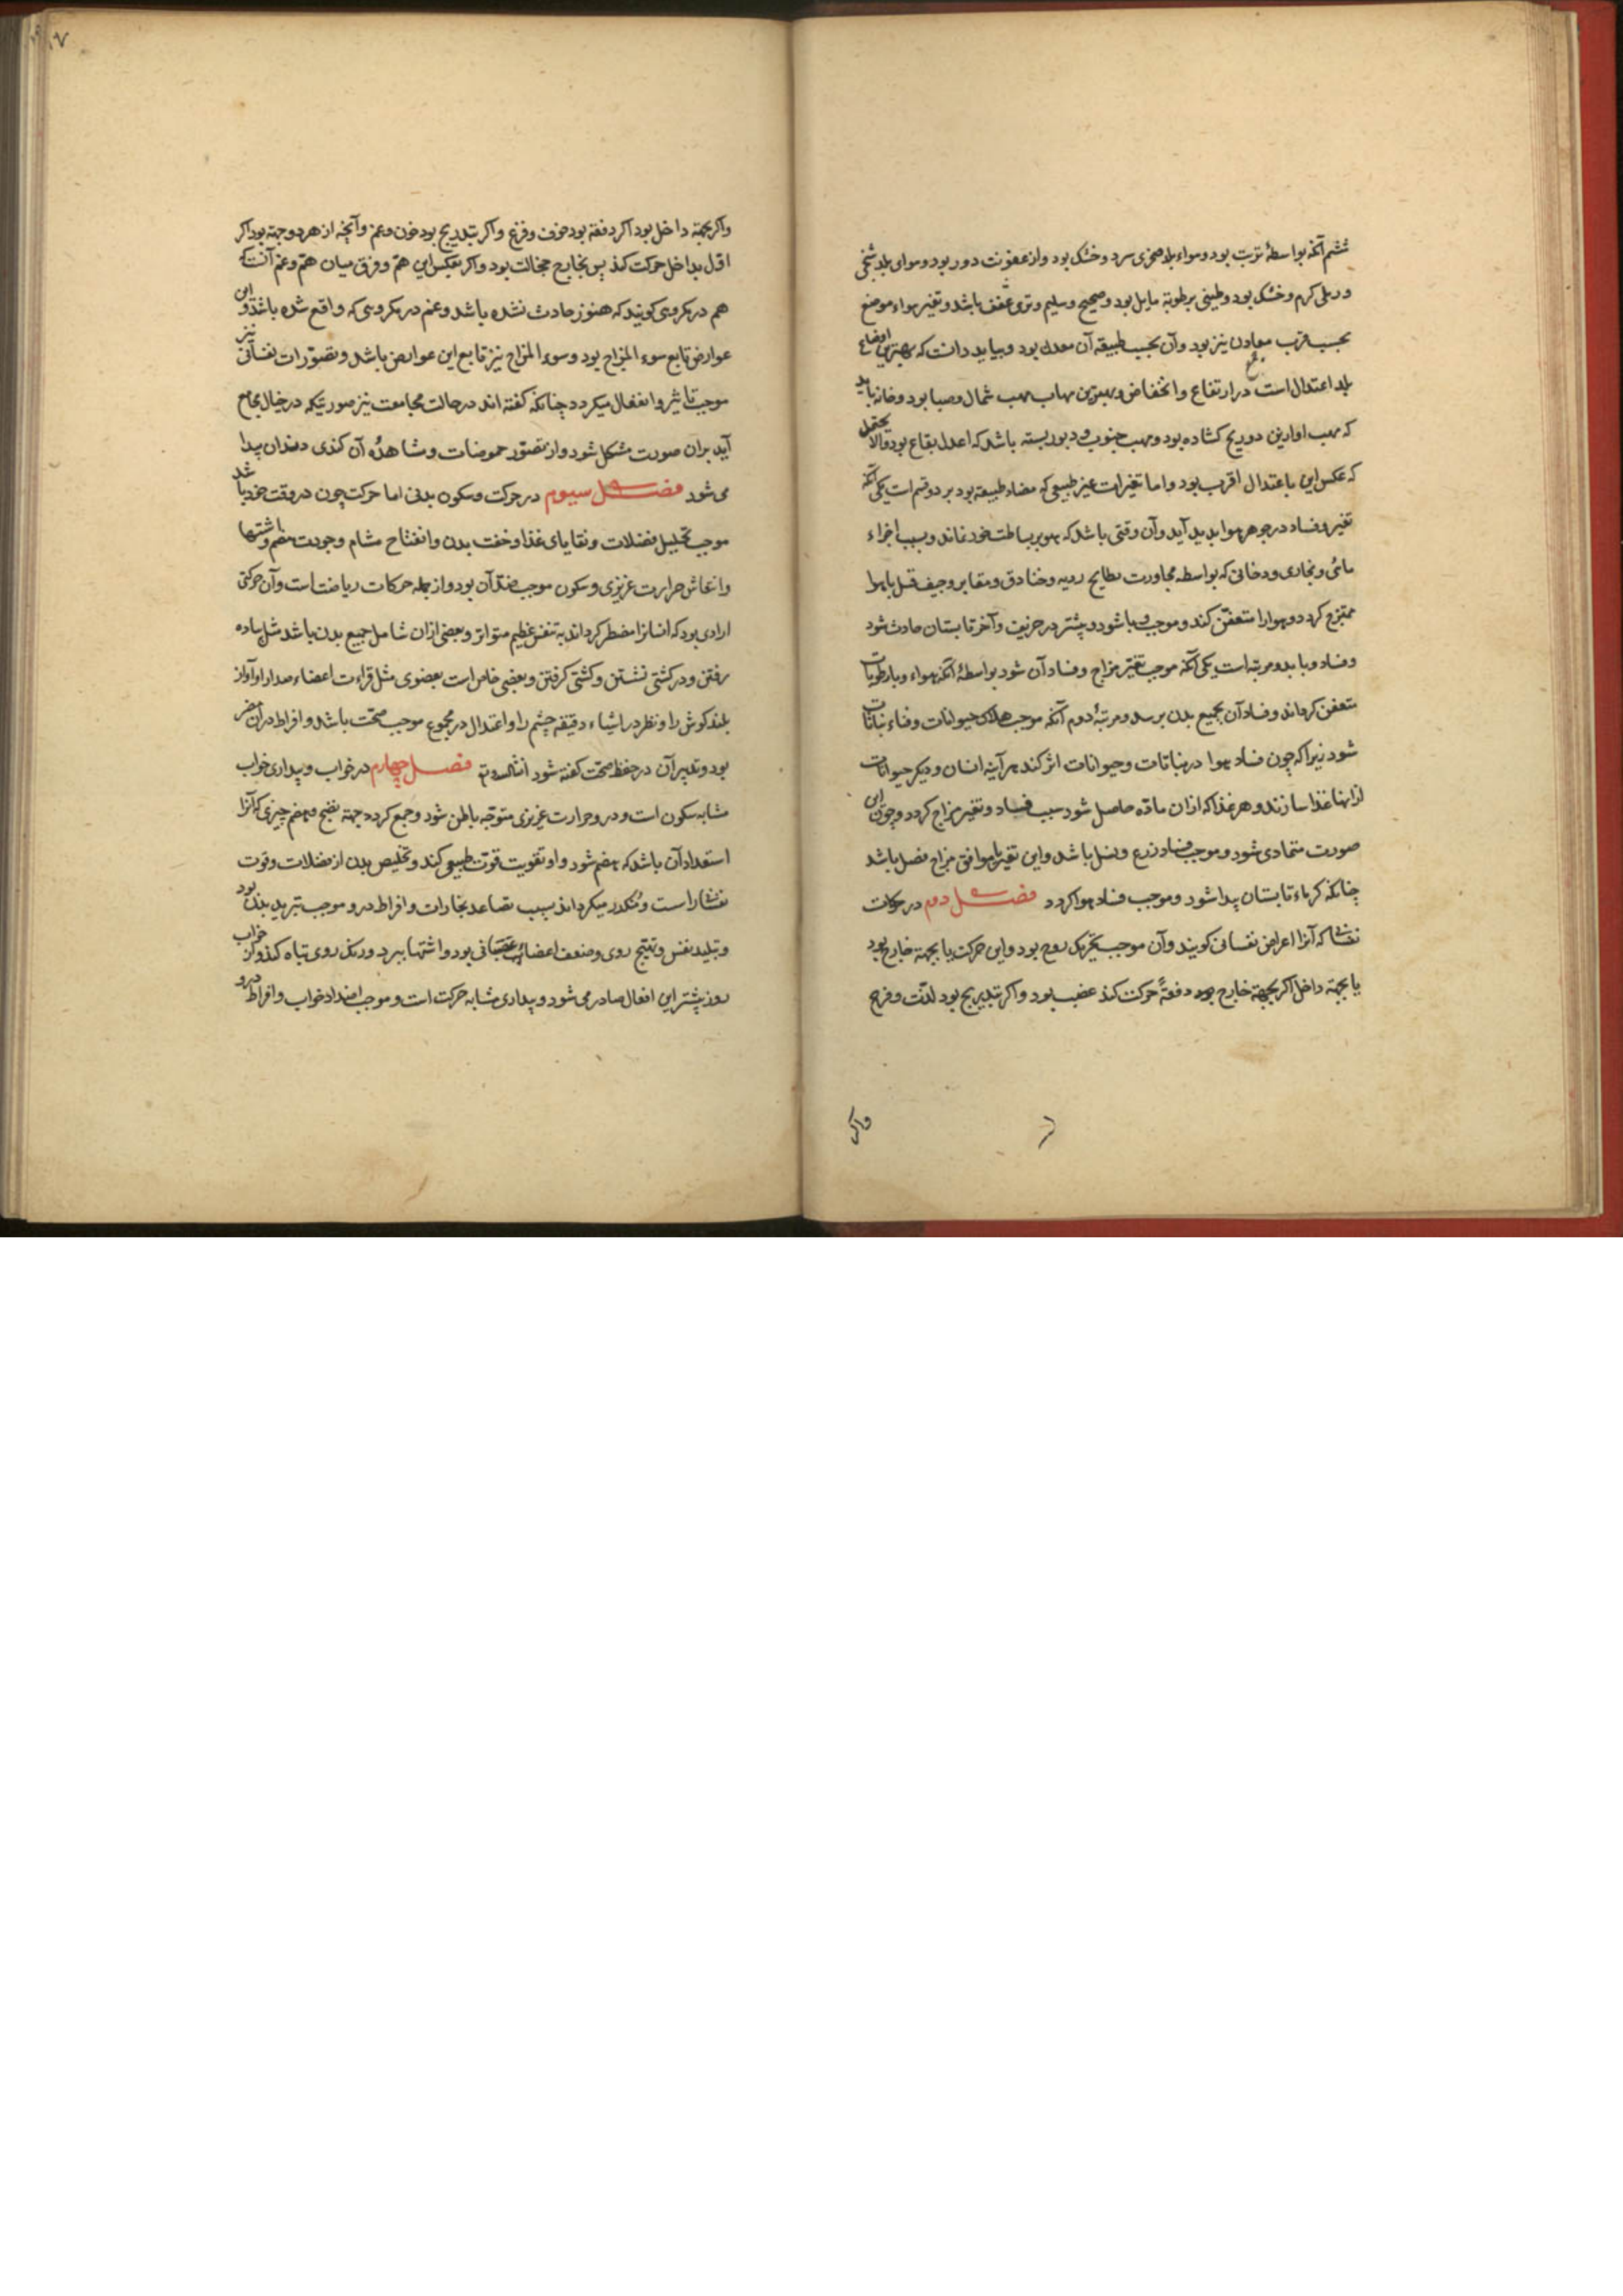 ششم آنکه بواسطهٔ تربت بود و هواء بلد صخری سرد و خشک بود و از عفونت دور بود و هوای بلد سبخی
و رملی گرم و خشک بود و طینی برطوبة مایل بود و صحیح و سلیم و تری عفن باشد و تغیر هواء موضع
بحسب قرب معادن نیز بود وآن بحسب طبیعة آن معدن بود و بباید دانست که بهترین اوضاع
بلد اعتدال است در ارتفاع و انخفاض و بهترین مهاب مهب شمال و صبا بود و خانه باید
که مهب او ازین دو ریح کشاده بود و مهب جنوب و دبور بسته باشد که اعدل بقاع بود والا
که عکس این باعتدال اقرب بود و اما تغیرات غیر طبیعی که مضاد طبیعة بود بر دو قسم است یکی آنکه
تغیر و فساد در جوهر هوا بدید آید وآن وقتی باشد که هو بر بساطت خود نماند و بسبب اجزاء
مائی و بخاری و دخانی که بواسطه مجاورت بطایح ردیه و خنادق و مقابر وجیف قتلی با هوا
ممتزج کردد و هوا را متعفن کند و موجب وبا شود و بیشتر در خریف و آخر تابستان حادث شود
و فساد وبا بدو مرتبه است یکی آنکه موجب تغیر مزاج و فساد آن شود بواسطهٔ آنکه هواء وبا رطوبات
متعفن کرداند و فساد آن بجمیع بدن برسد و مرتبهٔ دوم آنکه موجب هلاک حیوانات و فناء نباتات
شود زیرا که چون فساد هوا در نباتات و حیوانات اثر کند هر آینه انسان و دیکر حیوانات
ازینها غذا سازند و هر غذا که ازان ماده حاصل شود سبب فساد و تغیر مزاج کردد و چون این
صورت متمادی شود و موجب فساد زرع و نسل باشد و این تغیر یا موافق مزاج فصل باشد
چنانکه کرماء تابستان پیدا شود و موجب فساد هوا کردد فصل دوم در حرکات
نفسانی که آنرا اعراض نفسانی کویند وآن موجب تحریک روح بود و این حرکت یا بجهة خارج بود
یا بجهة داخل اکر بجهة خارج بود دفعةً حرکت کند غضب بود و اکر بتدریج بود لذت و فرح
واکر
۱۷
واکر بجهة داخل بود اکر دفعة بود خوف و فزع و اکر بتدریج بود حزن و غم و آنچه از هر دو جهة بود اکر
اول بداخل حرکت کند پس بخارج خجالت بود و اکر بعکس این هم و فرق میان هم و غم آنست که
هم در مکروهی کویند که هنوز حادث نشده باشد و غم در مکروهی که واقع شده باشد و این
عوارض تابع سوء المزاج بود و سوء المزاج نیز تابع این عوارض باشد و تصورات نفسانی نیز
موجب تاثیر و انفعال میکردد چنانکه کفته اند در حالت مجامعت نیز صورتیکه در خیال مجامع
آید بران صورت مشکل شود و از تصور حموضات و مشاهدهٔ آن کندی دندان پیدا
می شود فصل سیوم در حرکت و سکون بدنی اما حرکت چون در وقت خود باشد
موجب تحلیل فضلات و بقایای غذا و خفت بدن و انفتاح مشام و جودت هضم و اشتها
و انعاش حرارت غریزی و سکون موجب ضد آن بود و از جمله حرکات ریاضت است وآن حرکتی
ارادی بود که انسانرا مضطر کرداند به تنفس عظیم متواتر و بعضی ازان شامل جمیع بدن باشد مثل پیاده
رفتن و در کشتی نشستن و کشتی کرفتن و بعضی خاص است بعضوی مثل قراءت اعضاء صدارا و آواز
بلند کوش را و نظر در اشیاء دقیقه چشم را و اعتدال در مجموع موجب صحت باشد و افراط دران مضر
بود و تدبیر آن در حفظ صحت کفته شود انشاالله تع فصل چهارم در خواب و بیداری خواب
مشابه سکون است و درو حرارت غریزی متوجه باطن شود و جمع کردد جهة نضج و هضم چیزی که آنرا
استعداد آن باشد که هضم شود و او تقویت قوت طبیعی کند و تخلیص بدن از فضلات و قوت
نفسانی راست و مکدر میکرداند بسبب تصاعد بخارات و افراط درو موجب تبرید بدن بود
و تبلید نفس و تهیج روی و ضعف اعضاء عصبانی بود و اشتها ببرد و رنک روی تباه کند و از خواب
روز بیشتر این افعال صادر می شود و بیداری مشابه حرکت است و موجب امتداد خواب و افراط درو